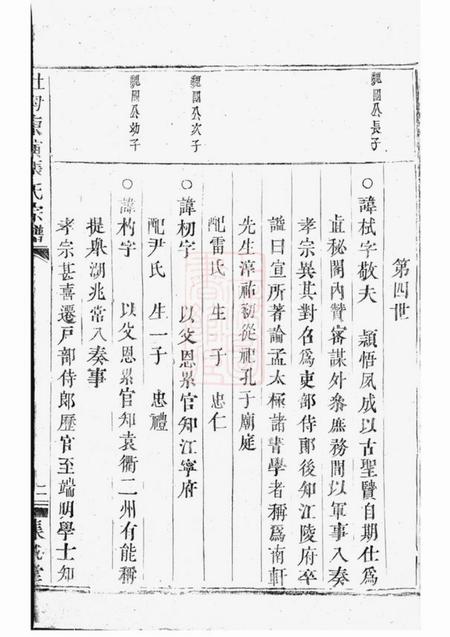 第四世
魏國公長子
○諱栻字敬夫 頴悟夙成以古聖賢自期仕爲
直秘閣內贊密謀外叅庶務間以軍事入奏
孝宗異其對召爲吏部侍郎後知江陵府卒
諡曰宣所著論孟太極諸書學者稱爲南軒
先生淳祐初從祀孔子廟庭
配雷氏 生 子 忠仁
魏國公次子
○諱杒字 以父恩累官知江寧府
配尹氏 生一子 忠禮
魏國公幼子
○諱杓字 以父恩累官知袁衢二州有能稱
提舉湖兆常入奏事
孝宗甚喜遷戸部侍郎歷官至端明學士知
張氏宗譜